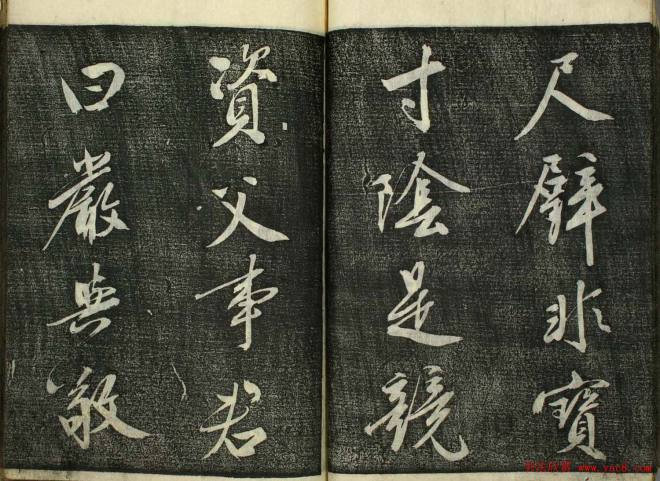 尺璧非寶
寸陰是競
資父事君
曰嚴與敬
www.yac8.com